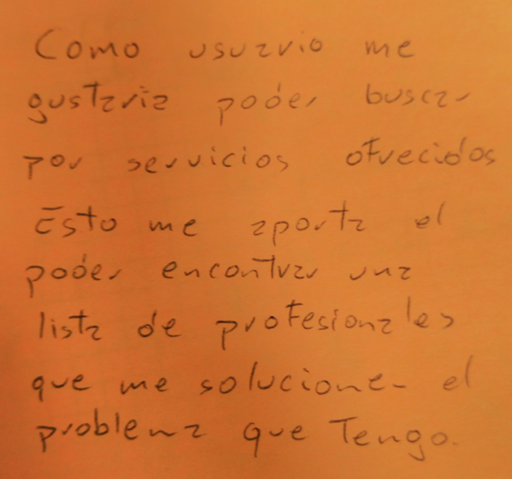 Como usuario me
gustaria poder buscar
por servicios ofrecidos
Esto me aporta el
poder encontrar una
lista de profesionales
que me solucionen el
problema que Tengo.